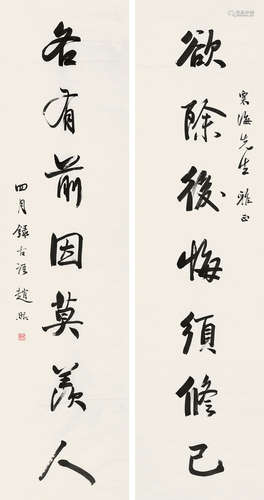 海先生雅正
欲除後悔須修己
各有前因莫羨人
四月錄古語趙